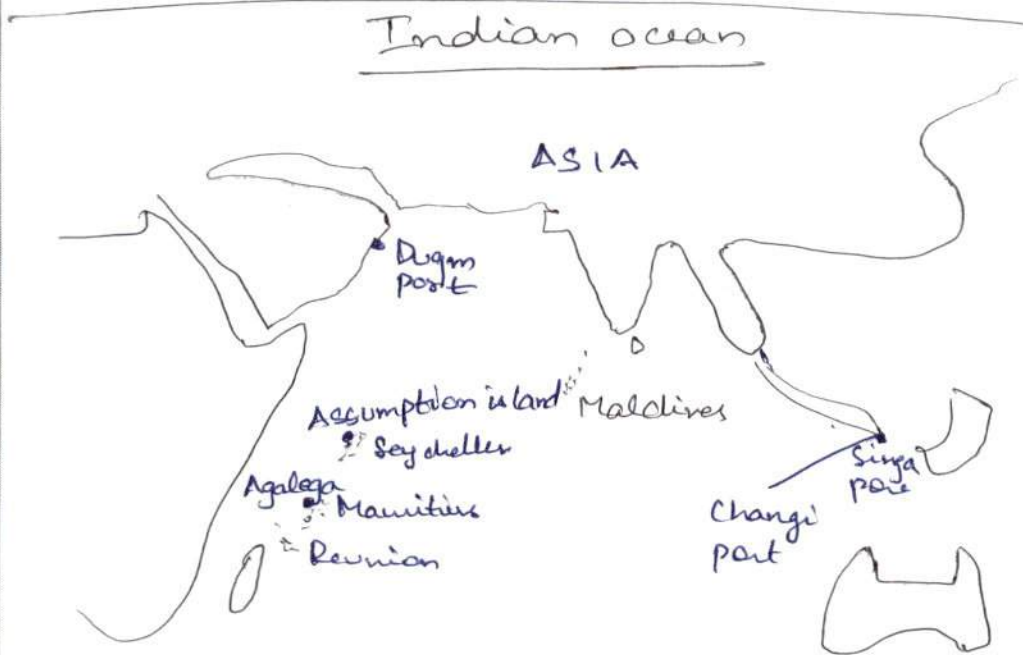 Indian ocean
ASIA
Duqm
port
Assumption island
Maldives
Seychelles
Agalega
Mauritius
Reunion
Singa
pore
Changi
port